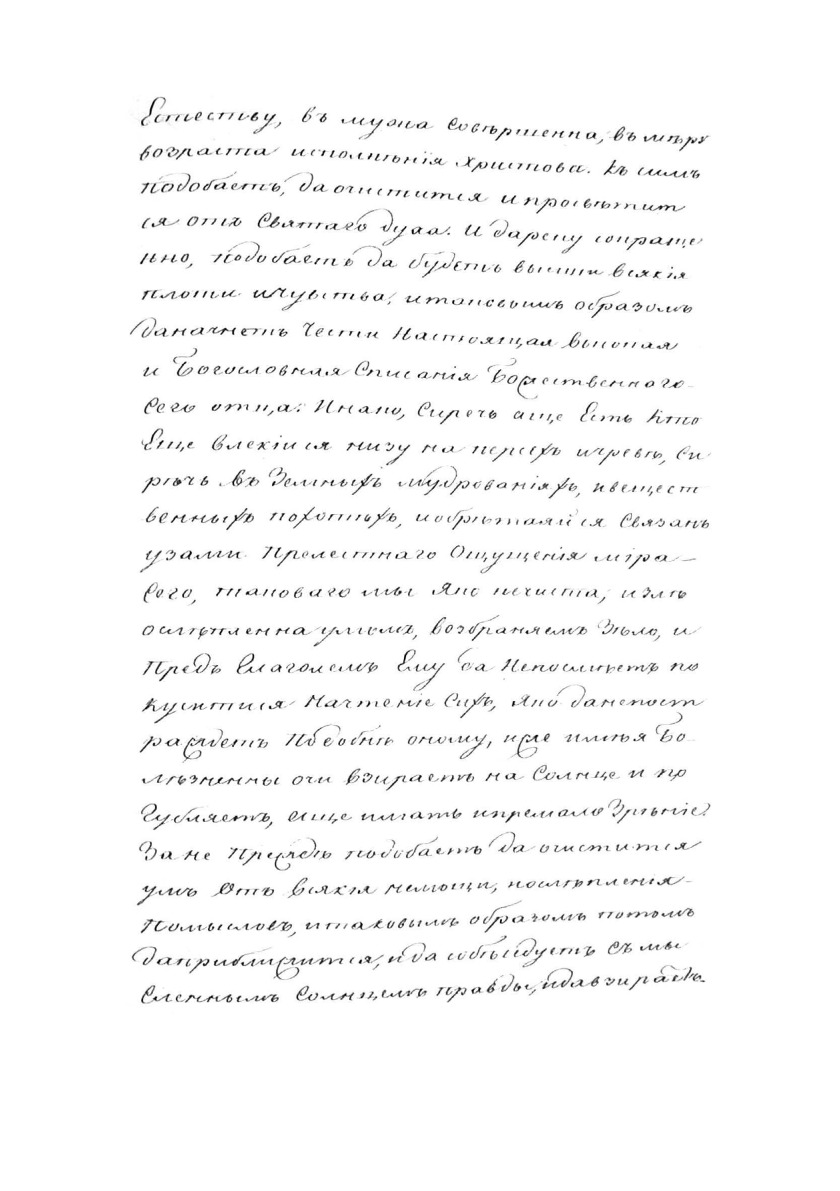 Естеству, въ мужа совѣршенна, въ мѣру
возраста исполнѣнія Христова. Къ симъ
подобаетъ, да очистится и просвѣтит
ся отъ Святаго духа. И да реку сокраще
нно, подобаетъ да будетъ вышши всякія
плоти и чувства, и таковымъ образомъ
да начнетъ Чести Настоящая высокая
и Богословная Списанія Божественнаго
Сего отца: Инако, Сиречь аще Есть кто
Еще влекійся низу на персѣхъ и чревѣ, Си
рѣчь въ Земныхъ мудрованіяхъ, и вещест
венныхъ похотѣхъ, и обрѣтаяйся Связанъ
узами Прелестнаго Ощущенія міра
Сего, таковаго мы Яко нечиста, и злѣ
ослѣпленна умомъ, возбраняемъ Зѣло, и
Предъ Глаголемъ Ему да Непосмѣетъ по
куситися На чтеніе Сихъ, Яко да непост
раждетъ Подобнѣ оному, иже имѣя Бо
лѣзненны очи взираетъ на Солнце и по
Губляетъ, аще имать и премало Зрѣніе.
Зане Преждѣ подобаетъ да очистится
умъ Отъ всякія немощи, и ослѣпленія
Помысловъ, и таковымъ образомъ потомъ
да приближится, и да собѣсѣдуетъ Съ мы
Сленнымъ Солнцемъ правды, и да взираетъ